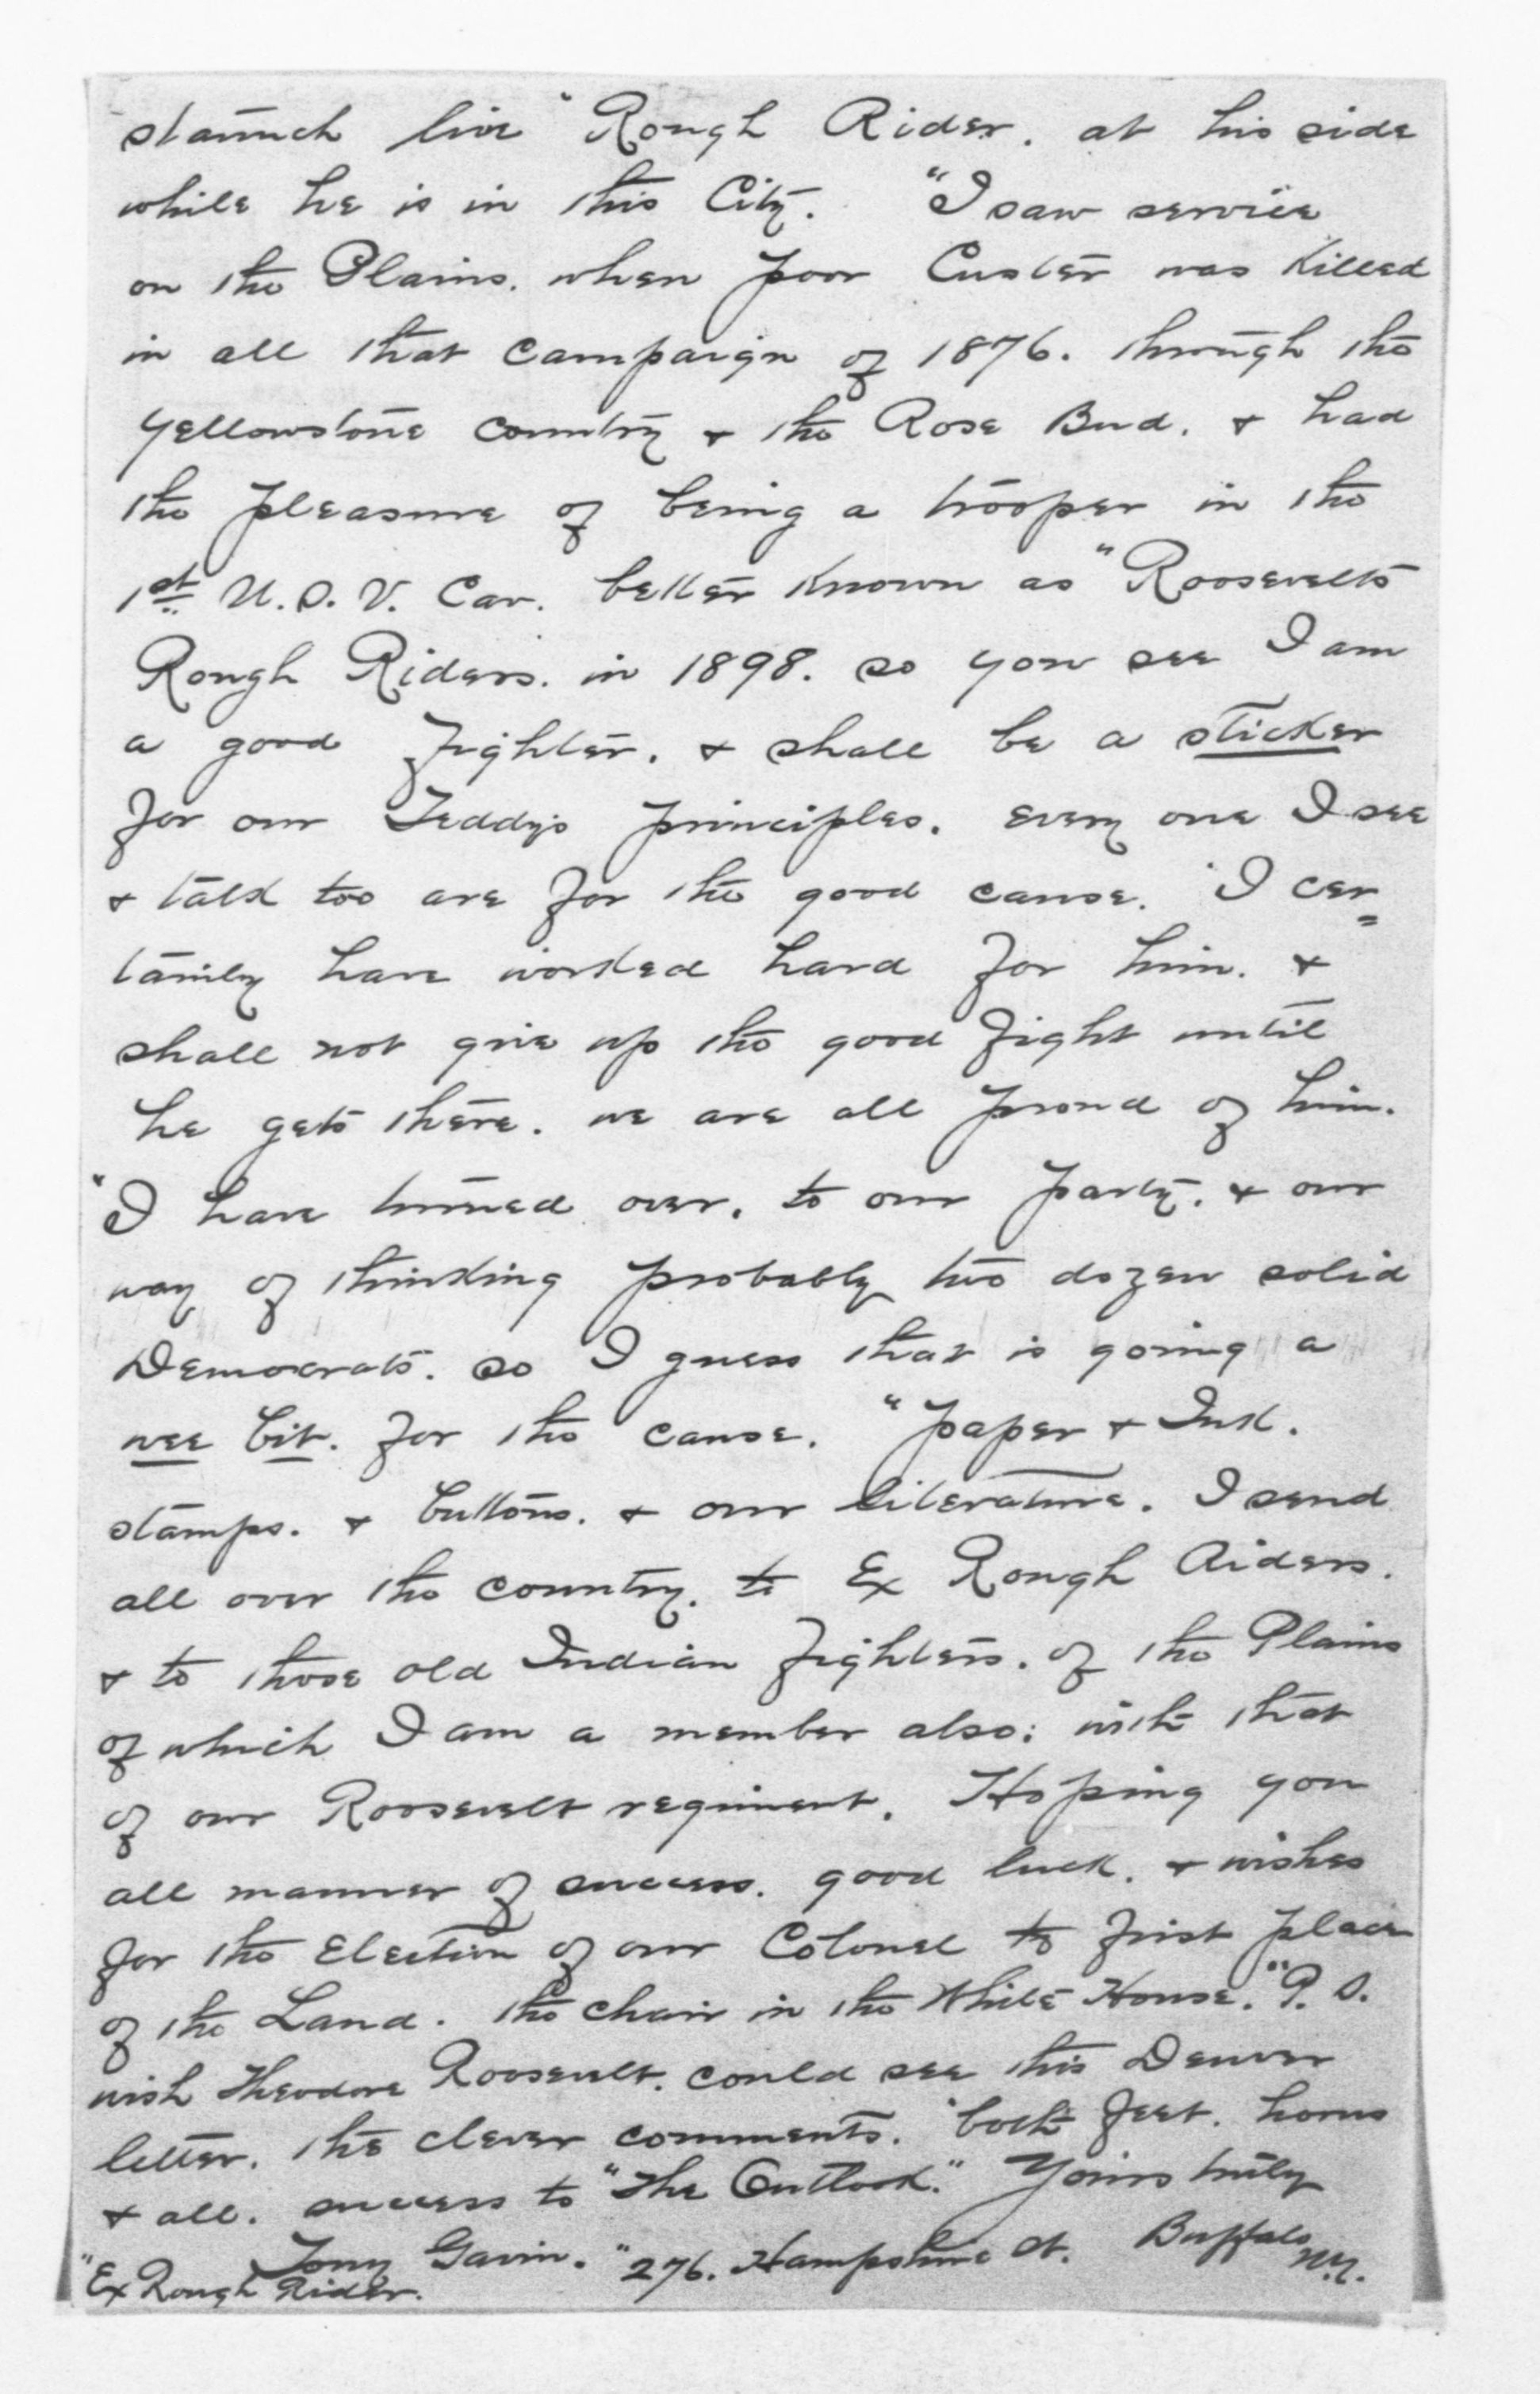 staunch live "Rough Rider. at his side
while he is in this City. "I saw service
on the Plains. when poor Custer was Killed
in all that campaign of 1876. through the
yellowstone country & the Rose Bud. & had
the pleasure of being a trooper in the
1st U.S.V. Cav. better known as "Roosevelts
Rough Riders. in 1898. so you see I am
a good fighter. & shall be a sticker
for our Teddy's principles. every one I see
& talk too are for the good cause. "I cer=
tainly have worked hard for him. &
shall not give up the good fight until
he gets there. we are all proud of him.
"I have turned over. to our party. & our
way of thinking probably two dozen solid
Democrats. so I guess that is going a
wee bit. for the cause. "paper & Ink.
stamps. & buttons. & our literature. I send
all over the country. to Ex Rough Riders.
& to those old Indian fighters. of the Plains
of which I am a member also: with that
of our Roosevelt regiment. Hoping you
all manner of success. good luck. & wishes
for the Election of our Colonel to first place
of the Land. the chair in the White House." "P.S.
wish Theodore Roosevelt. could see this Denver
letter. the clever comments. "both feet. horns
& all. success to "The Outlook." Yours truly
Tony Gavin. "276. Hampshire St. Buffalo N.Y.
"Ex Rough Rider.